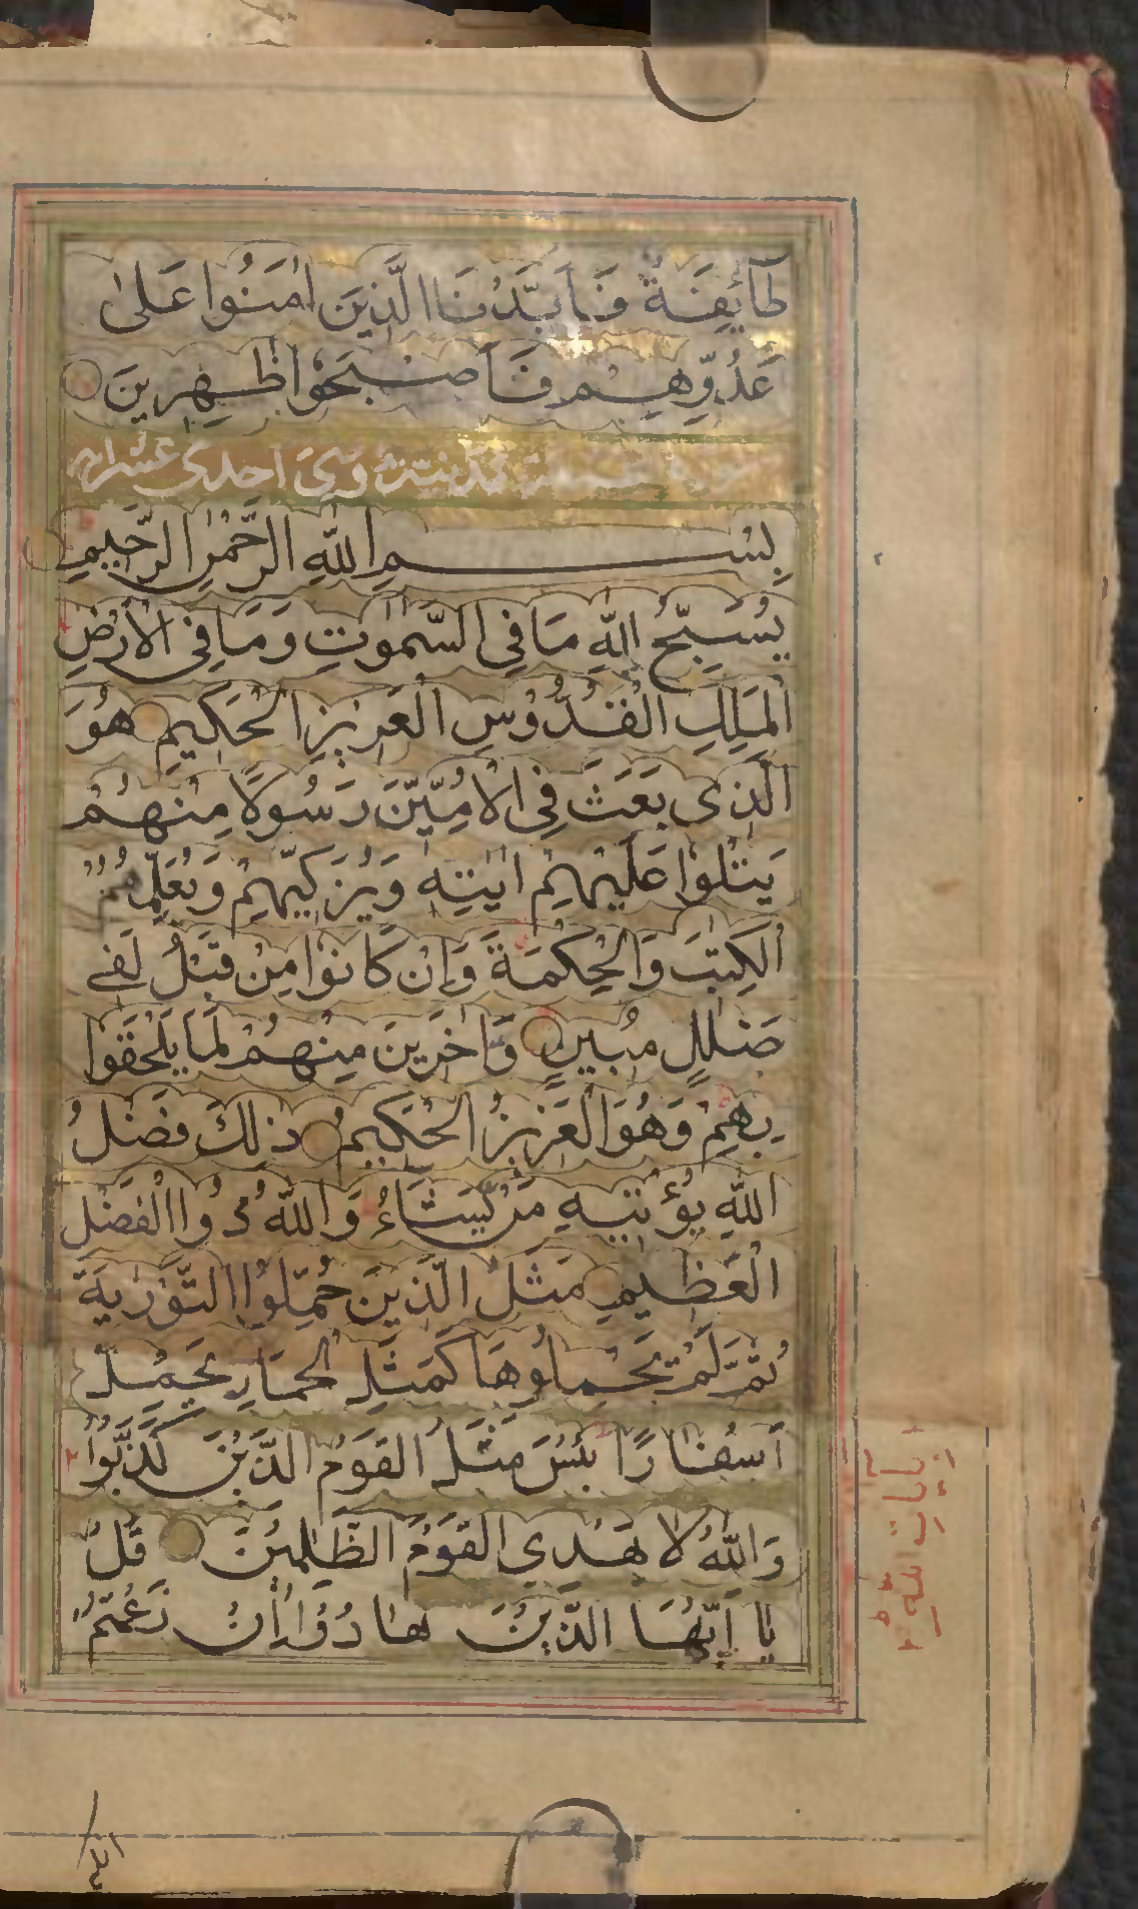 طَآئِفَةٌ فَاَيَّدْنَا الَّذِينَ اٰمَنُوا عَلٰى
عَدُوِّهِمْ فَاَصْبَحُوْا ظٰهِرِينَ
مدنيته وهي احدى عشر ايه
بِسْمِ اللّٰهِ الرَّحْمٰنِ الرَّحِيمِ
يُسَبِّحُ لِلّٰهِ مَا فِى السَّمٰوٰتِ وَمَا فِى الْاَرْضِ
الْمَلِكِ الْقُدُّوْسِ الْعَزِيزِ الْحَكِيمِ هُوَ
الَّذِى بَعَثَ فِى الْاُمِّيّٖنَ رَسُولًا مِنْهُمْ
يَتْلُوْا عَلَيْهِمْ اٰيٰتِهٖ وَيُزَكِّيهِمْ وَيُعَلِّمُهُمُ
الْكِتٰبَ وَالْحِكْمَةَ وَاِنْ كَانُوْا مِنْ قَبْلُ لَفِى
ضَلٰلٍ مُبِينٍ وَاٰخَرِينَ مِنْهُمْ لَمَّا يَلْحَقُوا
بِهِمْ وَهُوَ الْعَزِيزُ الْحَكِيمُ ذٰلِكَ فَضْلُ
اللّٰهِ يُؤْتِيهِ مَنْ يَشَآءُ وَاللّٰهُ ذُوا الْفَضْلِ
الْعَظِيمِ مَثَلُ الَّذِينَ حُمِّلُوا التَّوْرٰيةَ
ثُمَّ لَمْ يَحْمِلُوهَا كَمَثَلِ الْحِمَارِ يَحْمِلُ
اَسْفَارًا بِئْسَ مَثَلُ الْقَوْمِ الَّذِيْنَ كَذَّبُوْا
وَاللّٰهُ لَا يَهْدِي الْقَوْمَ الظّٰلِمِيْنَ قُلْ
يَا اَيُّهَا الَّذِيْنَ هَادُوْا اِنْ زَعَمْتُمْ
بِاٰيَاتِ اللّٰهِ